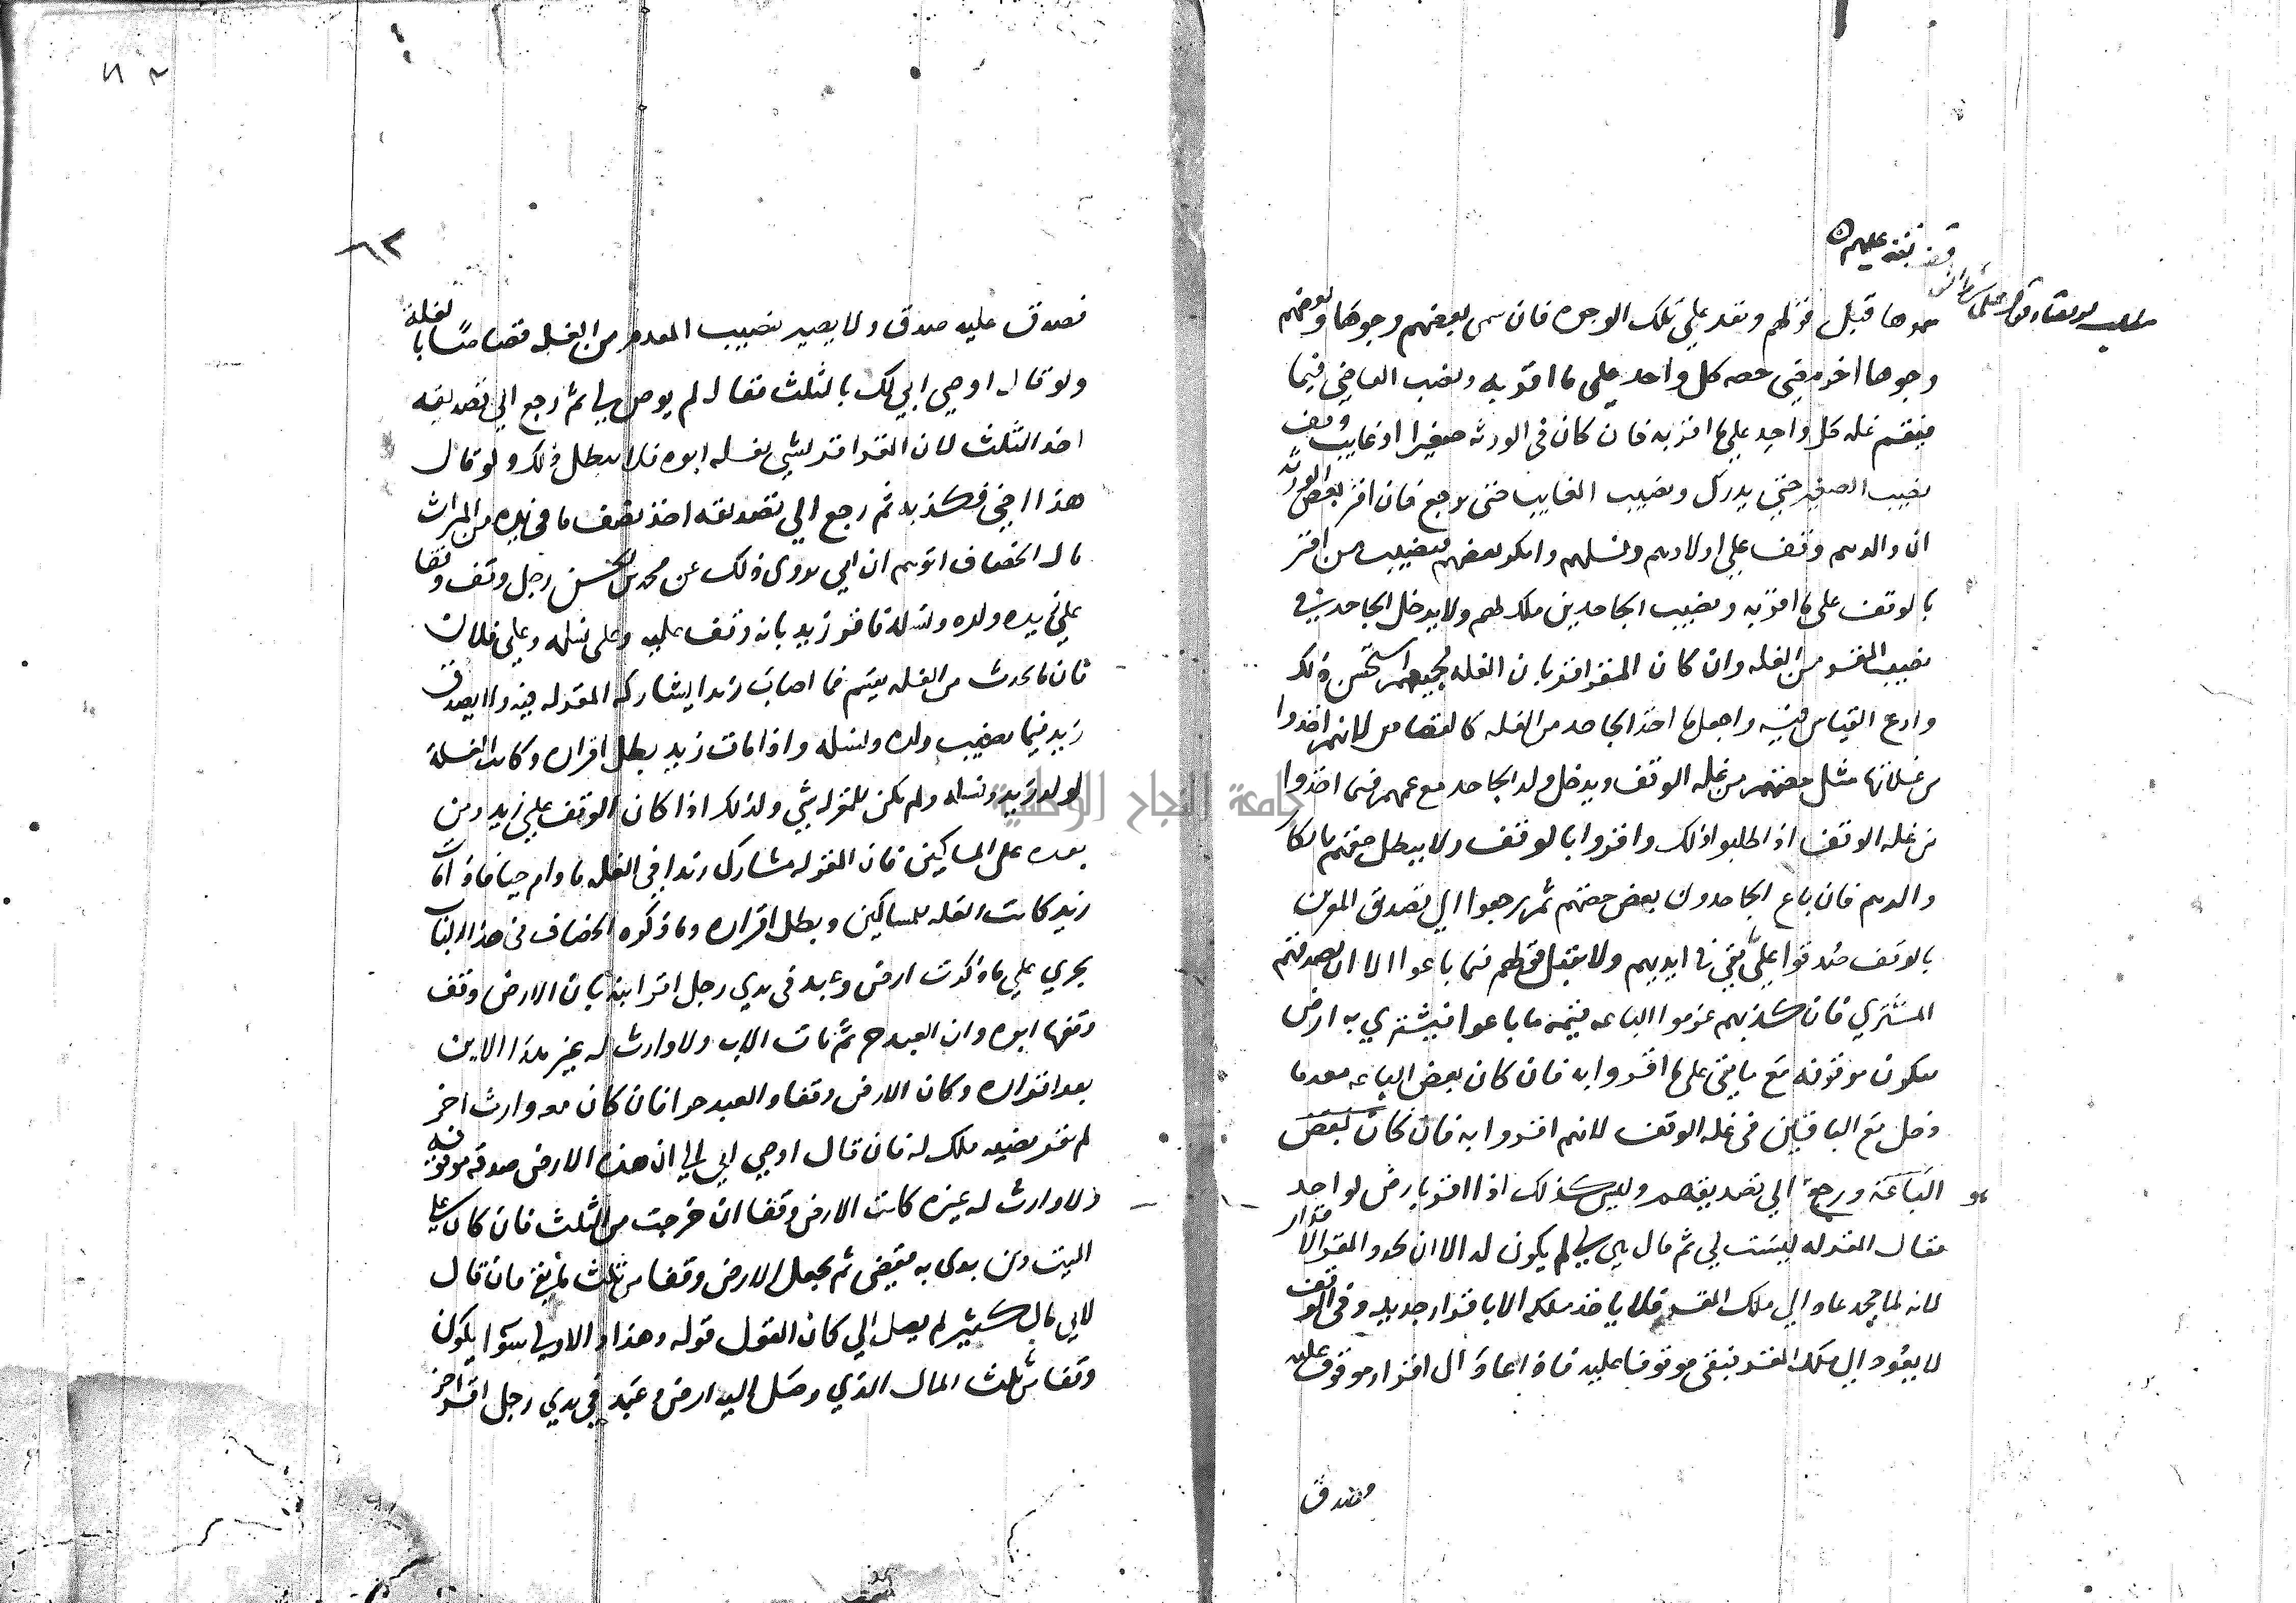 سموها قبل قولهم ونفد علي تلك الوجوه فان سمى بعضهم وجوها وبعضهم
وجوها اخر فهي حصه كل واحد على ما اقر به ونصب القاضي فيما
فيقسم غله كل واحد علي ما اقر به فان كان في الورثه صغيرا او غايب وقف
نصيب الصغير حتي يدرك ونصيب الغايب حتى يرجع فان اقر بعض الورثه
ان والدهم وقف علي اولادهم ونسلهم وانكر بعضهم فنصيب من اقر
بالوقف على ما اقر به ونصيب الجاحدين ملك لهم ولا يدخل الجاحد في
نصيب المقر من الغله وان كان المقر اقر بان الغله لجميعهم استحسن ذلك
وادع القياس فيه واجعل ما اخذ الجاحد من الغله كالقصاص لانهم اخذوا
من غلاتها مثل حصتهم من غله الوقف ويدخل ولد الجاحد مع عمهم فيما اخذوا
من غله الوقف اذا طلبوا ذلك واقروا بالوقف ولا يبطل حقهم بانكار
والدهم فان باع الجاحدون بعض حصتهم ثم رجعوا الي تصديق المقرين
بالوقف صدقوا على بقي في ايديهم ولا يقبل قولهم فيما باعوا الا ان يصدقهم
المشتري فان كذبهم غرموا الباعه قيمة ما باعوا فيشتري به ارض
فيكون موقوفه مع ما بقي على ما اقروا به فان كان بعض الباعه معدما
دخل مع الباقين في غله الوقف لانهم اقروا به فان كان بعض
الباعة ورجع الي تصديقهم وليس كذلك اذا اقر بارض لواحد
فقال المقر له ليست لي ثم قال هي لي لم يكون له الا ان يجدد المقر الاقرار
لانه لما جحد عاد الي ملك المقر فلا ياخذ ملكه الا باقرار جديد وفي الوقف
لا يعود الي ملك المقر فبقى موقوفا عليه فاذا عاد الى اقرار موقوف عليه
فصدق
٦٣
فصدق عليه صدق ولا يصير نصيب المعدم من الغله قصاصا بالغلة
ولو قال اوصي ابي لك بالثلث فقال لم يوص لي ثم رجع الي تصديقه
اخذ الثلث لان المقر اقر بشي يفعله ابوه فلا يبطل ذلك ولو قال
هذا اخي فكذبه ثم رجع الي تصديقه اخذ نصف ما في يده من الميراث
قال الخصاف اتوهم ان ابي روى ذلك عن محمد بن الحسن رجل وقف وقفا
علي زيد وولده ونسله فاقر زيد بانه وقف عليه وعلى نسله وعلي فلان
فان ما يحدث من الغله يقسم فما اصاب زيدا يشاركه المقر له فيه ولا يصدق
زيد فيما يصيب ولده ونسله واذا مات زيد بطل اقراره وكانت الغلة
لولد زيد ونسله ولم يكن للمقر له شي ولذلك اذا كان الوقف علي زيد ومن
بعده على المساكين فان المقر له يشارك زيدا في الغله ما دام حيا فاذا مات
زيد كانت الغله للمساكين وبطل اقراره وما ذكره الخصاف في هذا الباب
يجري علي ما ذكرت ارض وعبد في يدي رجل اقر ابنه بان الارض وقف
وقفها ابوه وان العبد حر ثم مات الاب ولا وارث له غير هذا الابن
بعد اقراره وكان الارض وقفا والعبد حرا فان كان معه وارث اخر
لم يقر نصيبه ملك له فان قال اوصي ابي الي ان هذه الارض صدقه موقوفه
ولا وارث له غيره كانت الارض وقفا ان خرجت من الثلث فان كان على
الميت دين بدى به فيقضي ثم يجعل الارض وقفا من ثلث ما بقي فان قال
لابي مال كثير لم يصل الي كان القول قوله وهذا والاولي سوا يكون
وقفا من ثلث المال الذي وصل اليه ارض وعبد في يدي رجل اقر اخر
جامعة النجاح الوطنية